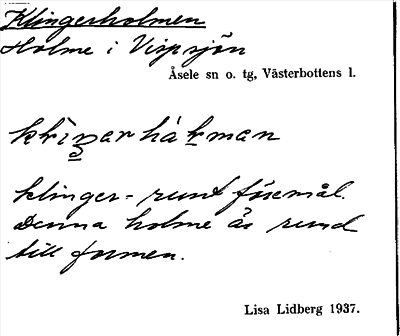 Klingerholmen
Holme i Virpsjön
Åsele sn o. tg, Västerbottens l.
klinger = runt föremål.
Denna holme är rund
till formen.
Lisa Lidberg 1937.